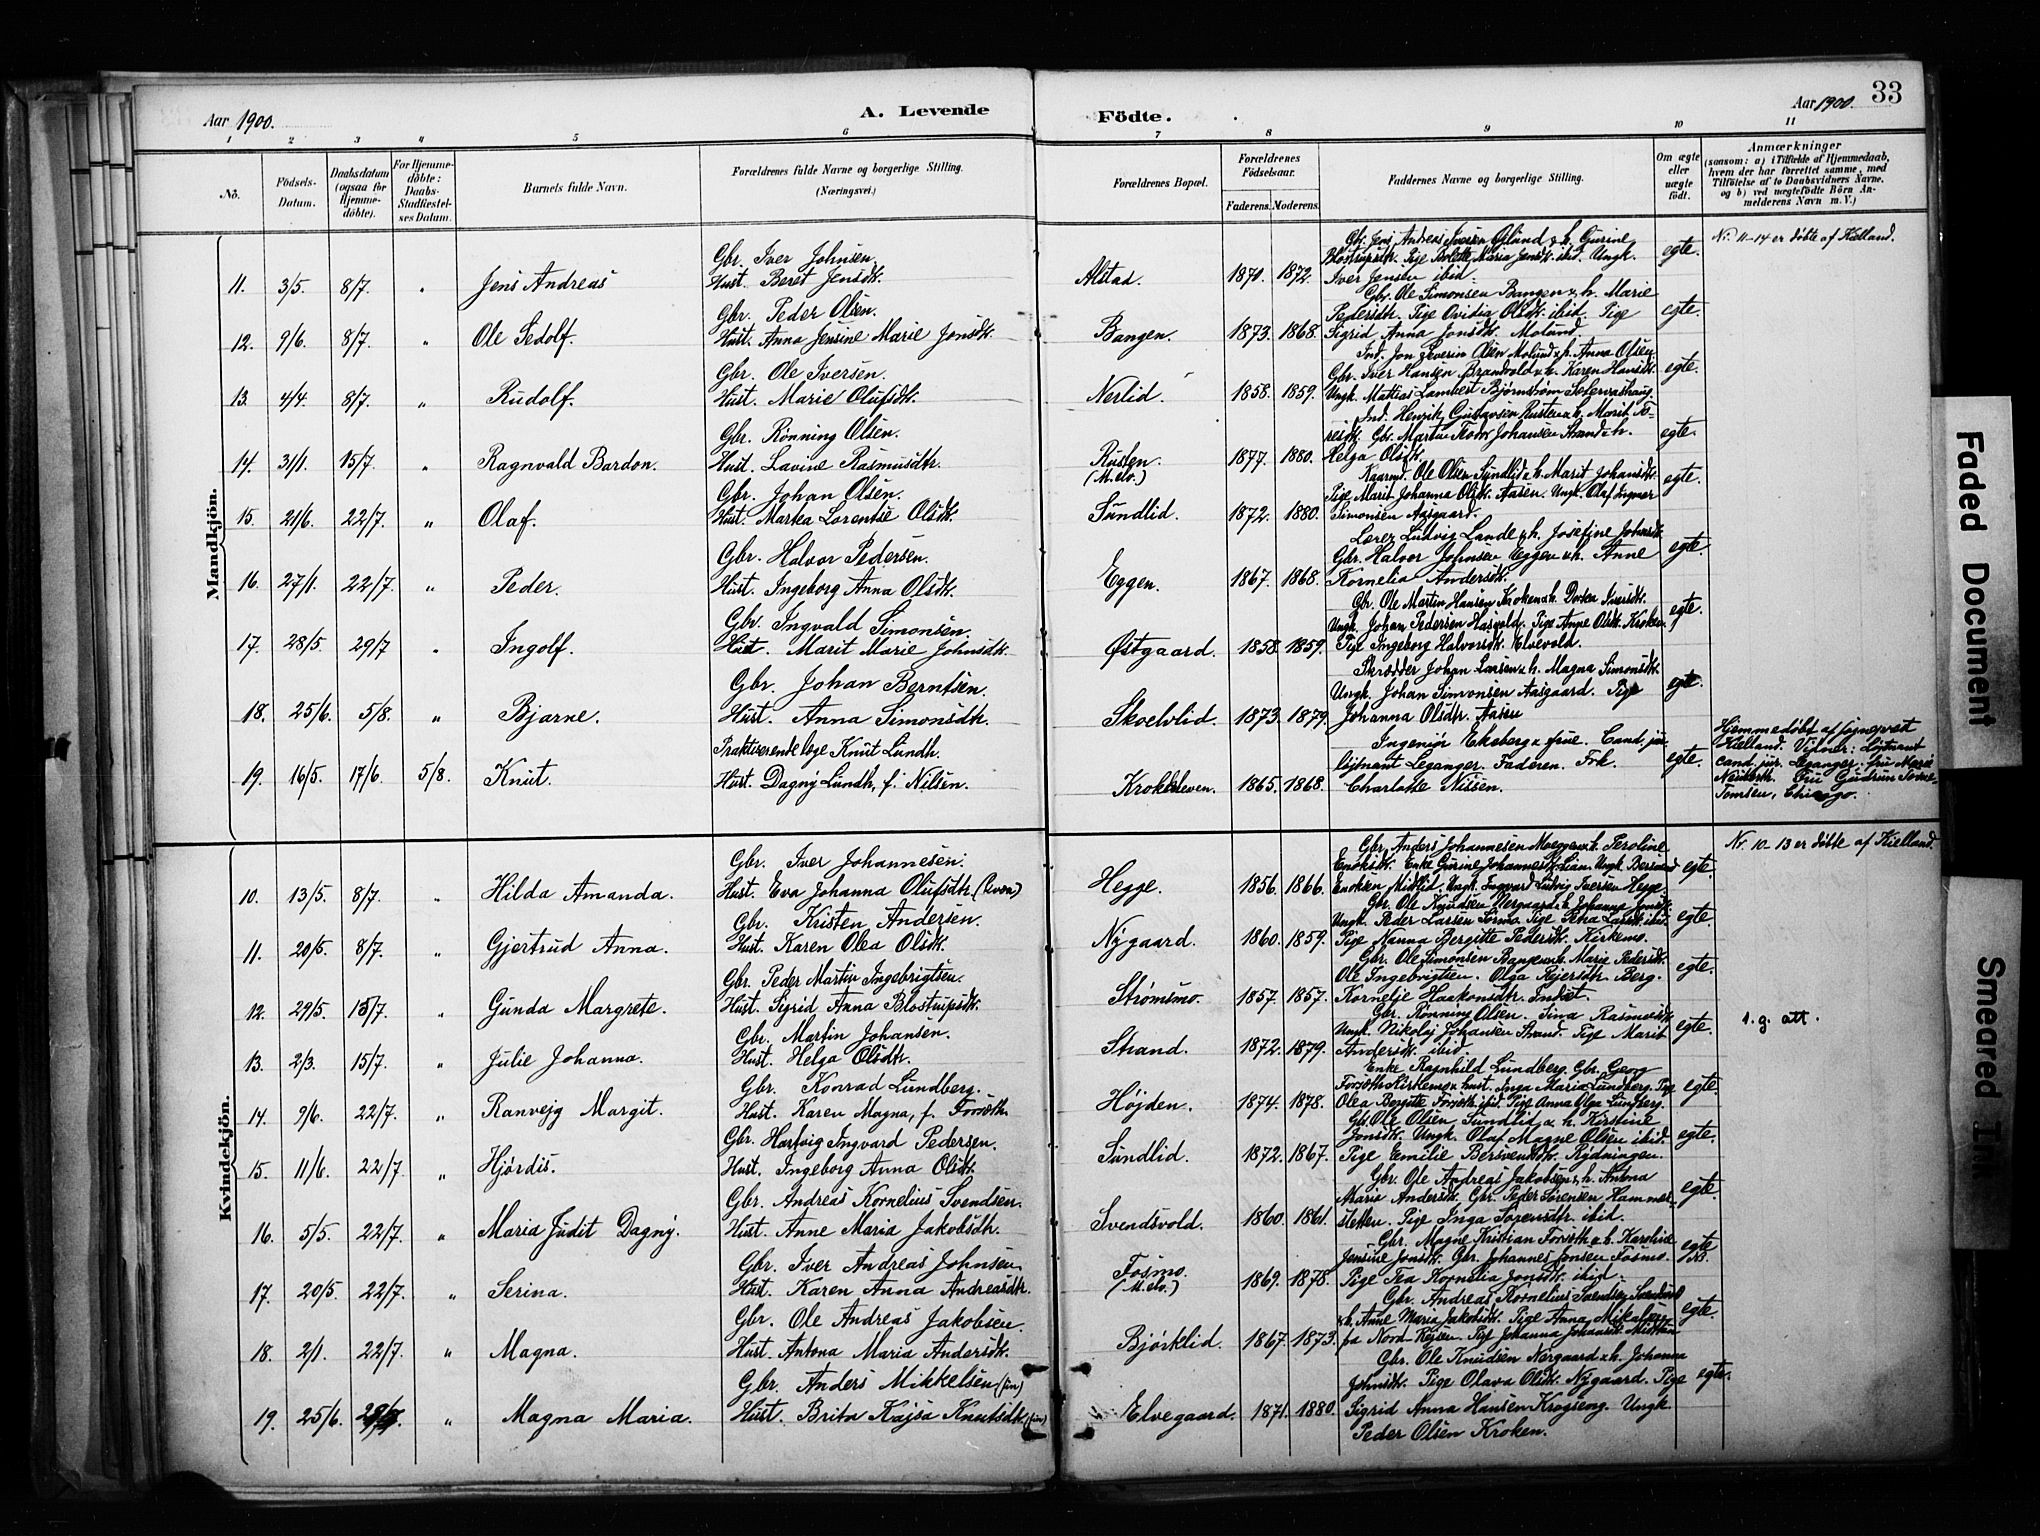 Aar 1900.
A. Levende
Födte.
Aar 1900.
33
1 2 3 4 5 6 7 8 9 10 11
No.
Födsels-Datum.
Daabsdatum (ogsaa for Hjemme-döbte).
For Hjemme-döbte: Daabs-Stadfæstel-ses Datum.
Barnets fulde Navn.
Forældrenes fulde Navne og borgerlige Stilling. (Næringsvei.)
Forældrenes Bopæl.
Forældrenes Födselsaar.
Faderens. Moderens.
Faddernes Navne og borgerlige Stilling.
Om ægte eller uægte födt.
Anmærkninger
(saasom: a) i Tilfælde af Hjemmedaab, hvem der har forrettet samme, med Tilföielse af to Daabsvidners Navne. og b) ved uægtefödte Börn Anmelderens Navn m. V.)
Mandkjön.
Gbr. Iver Johnsen.
11. 3/5. 8/7. " Jens Andreas Hust. Beret Jensdtr. Alstad. 1870. 1872. Iver Jensen ibid. egte. Nr. 11-14 er døbte af Kielland.
Gbr. Peder Olsen. Gbr. Ole Simonsen Bangen & h. Marie
Pedersdtr. Pige Ovidia Olsdtr. ibid. Pige
12. 9/6. 8/7. " Ole Sedolf. Hust. Anna Jensine Marie Jonsdtr. Bangen. 1873. 1868. Sigrid Anna Jonsdtr. Molund. egte.
Gbr. Ole Iversen. Ind. Jon Severin Olsen Molund & h. Anna Olsen.
Gbr. Iver Hansen Brandvold & h. Karen Hansdtr.
13. 4/4. 8/7. " Rudolf. Hust. Marie Olufsdtr. Nerlid. 1858. 1859. Ungk. Mathias Lambert Bjørnstrøm egte.
Gbr. Rønning Olsen. Ind. Henrik Gustavsen Rusten & h. Marit
Gbr. Martin Johansen Strand & h.
14. 31/1. 15/7. " Ragnvald Bardon. Hust. Lavine Rasmusdtr. Rusten. (M.elv.) 1877. 1880. Helga Olsdtr. egte.
Gbr. Johan Olsen. Kaarmd. Ole Olsen Sundlid & h. Marit Johansdtr.
Pige Marit Johanna Olsdtr. Aasen. Ungk. Olaf Ingvar
15. 21/6. 22/7. " Olaf. Hust. Martea Lorentse Olsdtr. Sundlid. 1872. 1880. Simonsen Aasgaard. egte.
Gbr. Halvor Pedersen. Lærer Ludvig Lande & h. Josefine
Gbr. Halvor Johnsen Eggen & h. Anne
16. 27/1. 22/7. " Peder. Hust. Ingeborg Anna Olsdtr. Eggen. 1867. 1868. Kornelia Andersdtr. egte.
Gbr. Ingvald Simonsen. Gbr. Ole Martin Hansen Kroken & h. Dorthea Iversdtr.
Ungk. Johan Pedersen Hasvold. Pige Anne Olsdtr. Kroken.
17. 28/5. 29/7 " Ingolf. Hust. Marit Marie Johnsdtr. Østgaard. 1858. 1859. Pige Ingeborg Halvorsdtr. Elvevold. egte.
Gbr. Johan Berntsen. Skrædder Johan Larsen & h. Magna Simonsdtr.
Ungk. Johan Simonsen Aasgaard. Pige
18. 25/6. 5/8. " Bjarne. Hust. Anna Simonsdtr. Skoelvlid. 1873. 1879. Johanna Olsdtr. Aasen egte.
Praktiserende læge Knut Lundh. Ingeniør Ekeberg & frue. Cand. jur.
løjtnant Leganger. Faderen. Frk.
19. 16/5. 17/6. 5/8. Knut. Hust. Dagny Lundh, f. Nilsen. Krokkleven. 1865. 1868. Charlotte Nissen. egte.
Hjemmedøbt af sognepræst
Kielland. Vidner: Løjtnant
cand. jur. Leganger, fru Marie
Fru Gudrun
Tomsen, Chicago.
Kvindekjön.
Gbr. Iver Johannesen. Gbr. Anders Johannesen Moeggen & h. Peroline
Enoksdtr. Enke Gurine Johannesdtr. Lian. Ungk. Bersvend
10. 13/5. 8/7. " Hilda Amanda. Hust. Eva Johanna Olufsdtr. (kven) Hegge. 1856. 1866. Enoksen Midtlid. Ungk. Ingvard Ludvig Iversen Hegge. egte. Nr. 10-13 er døbte af Kielland.
Gbr. Kristen Andersen. Gbr. Ole Knudsen Nergaard & h. Johanna Jonsdtr.
Ungk. Peder Larsen Sørmo. Pige Petra Larsdtr. ibid.
11. 20/5. 8/7. " Gjertrud Anna. Hust. Karen Olea Olsdtr. Nygaard. 1860. 1859. Pige Nanna Bergitte Pedersdtr. Kirkemo. egte.
Gbr. Peder Martin Ingebrigtsen. Gbr. Ole Simonsen Bangen & h. Marie Pedersdtr.
Ole Ingebrigtsen. Olga Pejersdtr. Berg.
12. 29/5. 15/7. " Gunda Margrete. Hust. Sigrid Anna Blostrupsdtr. Strømsmo. 1857. 1857. Kornelje Haakonsdtr. Indset. egte. 1. g. att.
Gbr. Martin Johansen. Gbr. Rønning Olsen. Lina Rasmusdtr.
Ungk. Nikolaj Johansen Strand. Pige Marit
13. 2/3. 15/7. " Julie Johanna. Hust. Helga Olsdtr. Strand. 1872. 1879. Andersdtr. ibid. egte.
Gbr. Konrad Lundberg. Enke Ragnhild Lundberg. Gbr. Georg
Forseth Kirkemo & hust. Inga Maria Lundberg. Pige
14. 9/6. 22/7. " Ranvejg Margit. Hust. Karen Magna, f. Forseth. Højden. 1874. 1878. Olea Bergitte Forseth ibid. Pige Anna Olga Lundberg. egte.
Gbr. Hartvig Ingvard Pedersen. Gbr. Ole Olsen Sundlid & h. Kirstine
Jonsdtr. Ungk. Olaf Magne Olsen ibid.
15. 11/6. 22/7. " Hjørdis. Hust. Ingeborg Anna Olsdtr. Sundlid. 1872. 1867. Pige Emilie Bersvendsdtr. Rydningen. egte.
Gbr. Andreas Kornelius Svendsen. Gbr. Ole Andreas Jakobsen & h. Antona
Marie Andersdtr. Gbr. Peder Sørensen Hammer-
16. 5/5. 22/7. " Maria Judit Dagny. Hust. Anne Maria Jakobsdtr. Svendsvold. 1860. 1861. sletten. Pige Inga Sørensdtr. ibid. egte.
Gbr. Iver Andreas Johnsen. Gbr. Magne Kristian Forseth & h. Karoline
Jensine Jonsdtr. Gbr. Johannes Jonsen Fosmo.
17. 20/5. 22/7. " Serina. Hust. Karen Anna Andreasdtr. Fosmo. (M.elv.) 1869. 1878. Pige Tea Kornelia Jonsdtr. ibid. egte
Gbr. Ole Andreas Jakobsen. Gbr. Andreas Kornelius Svendsen Svendsvold
& h. Anne Maria Jakobsdtr. Pige Anna Mikalsen
18. 2/1. 22/7. " Magna. Hust. Antona Maria Andersdtr. Bjørklid. 1867. 1873. fa Nord Rejsen. Pige Johanna Johansdtr. egte.
Gbr. Anders Mikkelsen (fin) Gbr. Ole Knudsen Nergaard & h. Johanna
Johnsdtr. Pige Olava Olsdtr. Nygaard. Pige
19. 25/6. " Magna Maria. Hust. Brita Kajsa Knutsdtr. (fin) Elvegaard. 1871. 1880. Sigrid Anna Hansen Krogseng. Ungk. egte.
Peder Olsen Kroken.
Faded Document
Smeared Ink